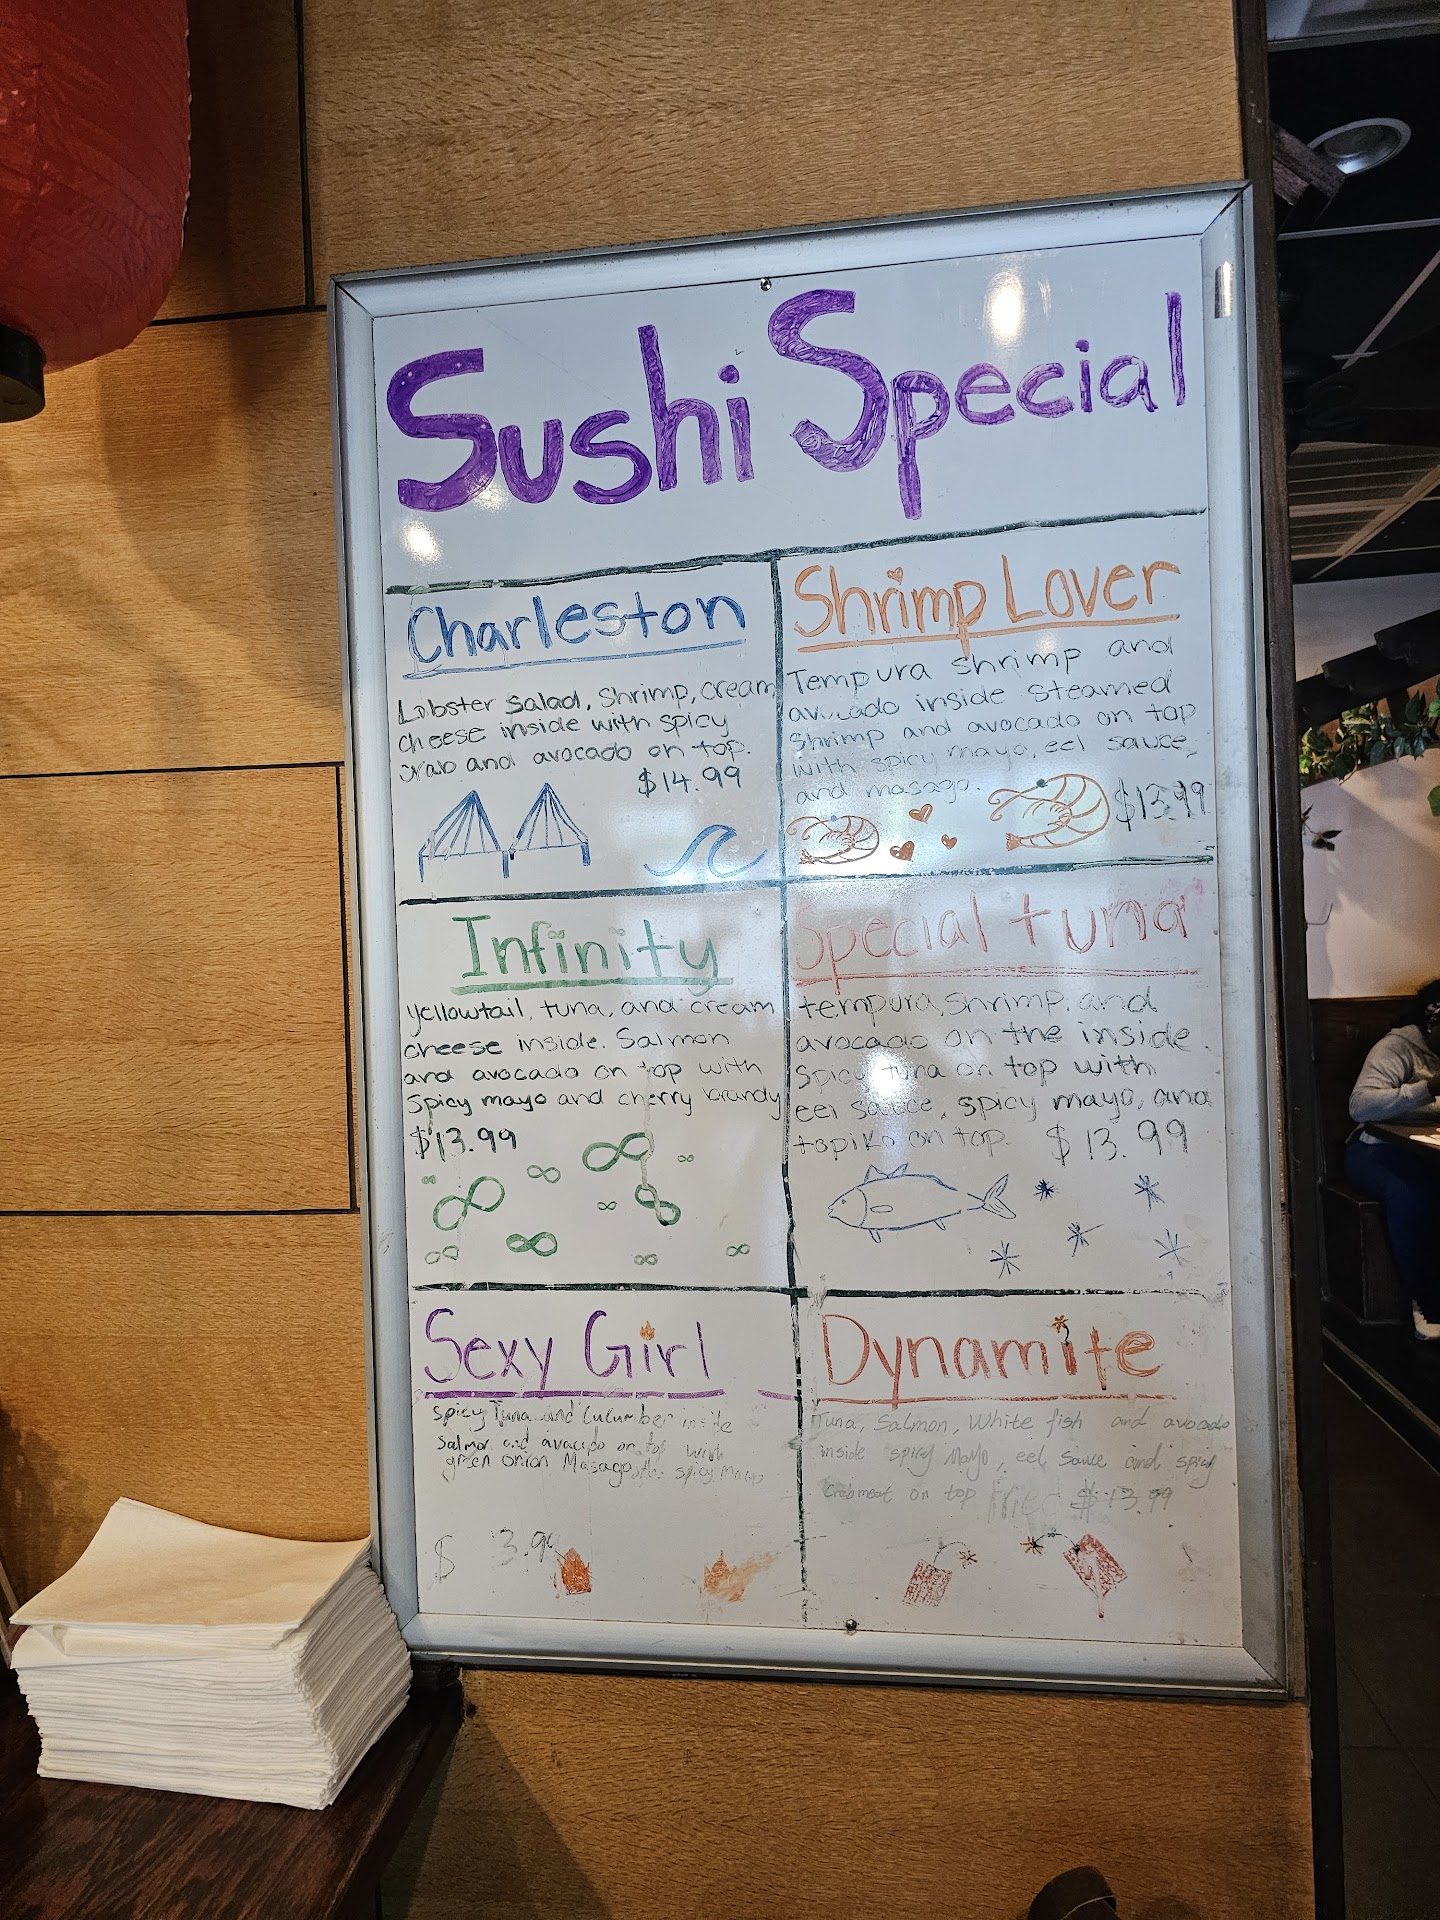 Sushi Special
Charleston
Lobster Salad, Shrimp, cream
cheese inside with spicy
crab and avocado on top.
$14.99
Shrimp Lover
Tempura shrimp and
avocado inside steamed
shrimp and avocado on top
with spicy mayo, eel sauce,
and masago.
$13.99
Infinity
Yellowtail, tuna, and cream
cheese inside. Salmon
and avocado on top with
Spicy mayo and cherry brandy
$13.99
Special tuna
tempura, shrimp, and
avocado on the inside.
Spicy tuna on top with
eel sauce, spicy mayo, and
tapiko on top. $13.99
Sexy Girl
Spicy Tuna and Cucumber inside
Salmon and avacado on top with
green onion Masago spicy Mayo
$ 3.99
Dynamite
Tuna, Salmon, White fish and avocado
inside spicy Mayo, eel Sauce and spicy
Crabmeat on top fried $13.99